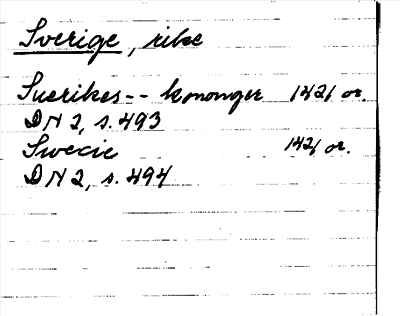 Sverige, rike
Suerikes-- konunger 1421 or.
DN 2, s. 493
Swecie 1421 or.
DN 2, s. 494